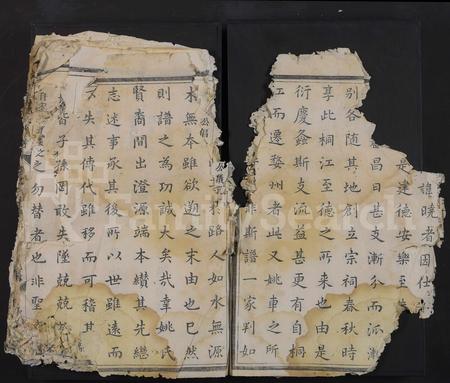 諱曉者因仕
是建德安樂至
昌日甚支漸分而派漸
别各隨其地創立宗祠春秋時
享此桐江至德之所來也由是
衍慶螽斯支流益甚更有自桐
江而遷婺州者此又姚車之所
非斯譜一家判如
於路人如水無源
木無本雖欲之末由也已然
則譜之為功誠大矣哉姚氏
賢裔間出澄源端本纘其先繼
志述事承其後所以世雖遠而
失其傳代雖移而可稽其
皆子孫罔敢失墜兢兢
之之勿替者也非聖
FamilySearch